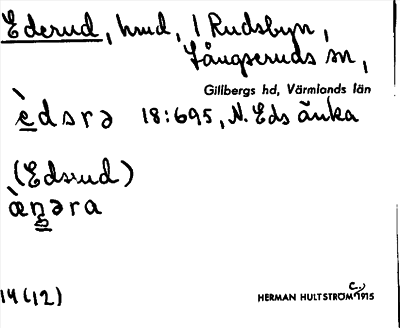 Ederud, hmd, i Rudsbyn,
Långseruds sn,
Gillbergs hd, Värmlands län
èdsrə 18:695, N. Eds änka
(Edsrud)
æ̀nəra
14(12)
HERMAN HULTSTRÖM c. 1915